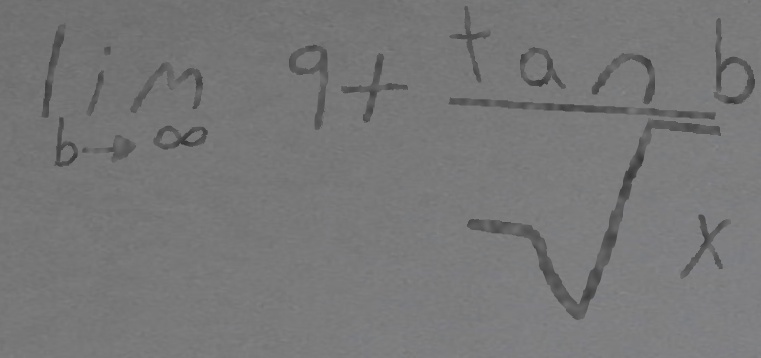 lim 9 + tan b
b → ∞ √x